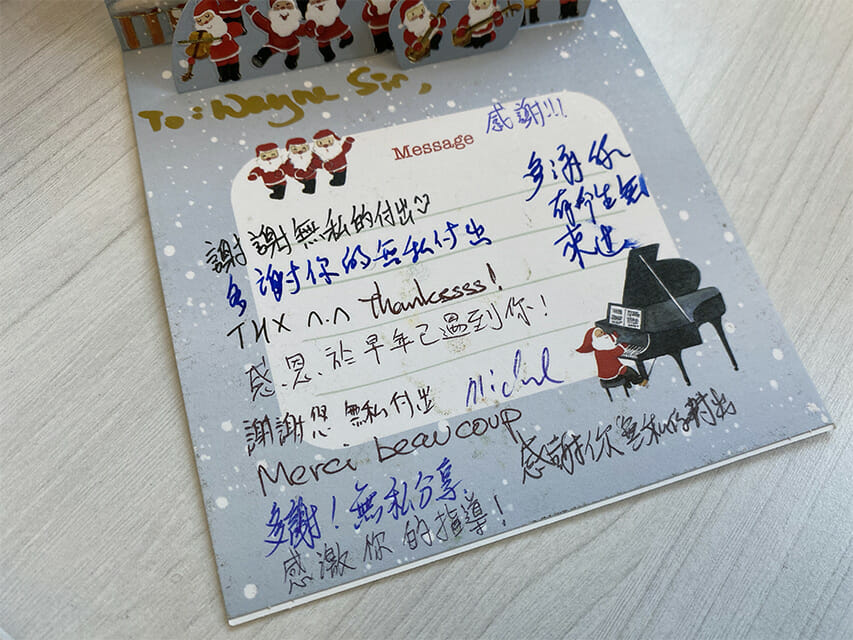 To: Wayne Sir,
Message
感謝!!!
多謝你
謝謝無私的付出♡
多謝你的無私付出
THX ^.^ Thanksssss!
感恩於早年已遇到你!
謝謝您無私付出
Merci beaucoup
感謝你無私的付出
多謝!無私分享
感激你的指導!